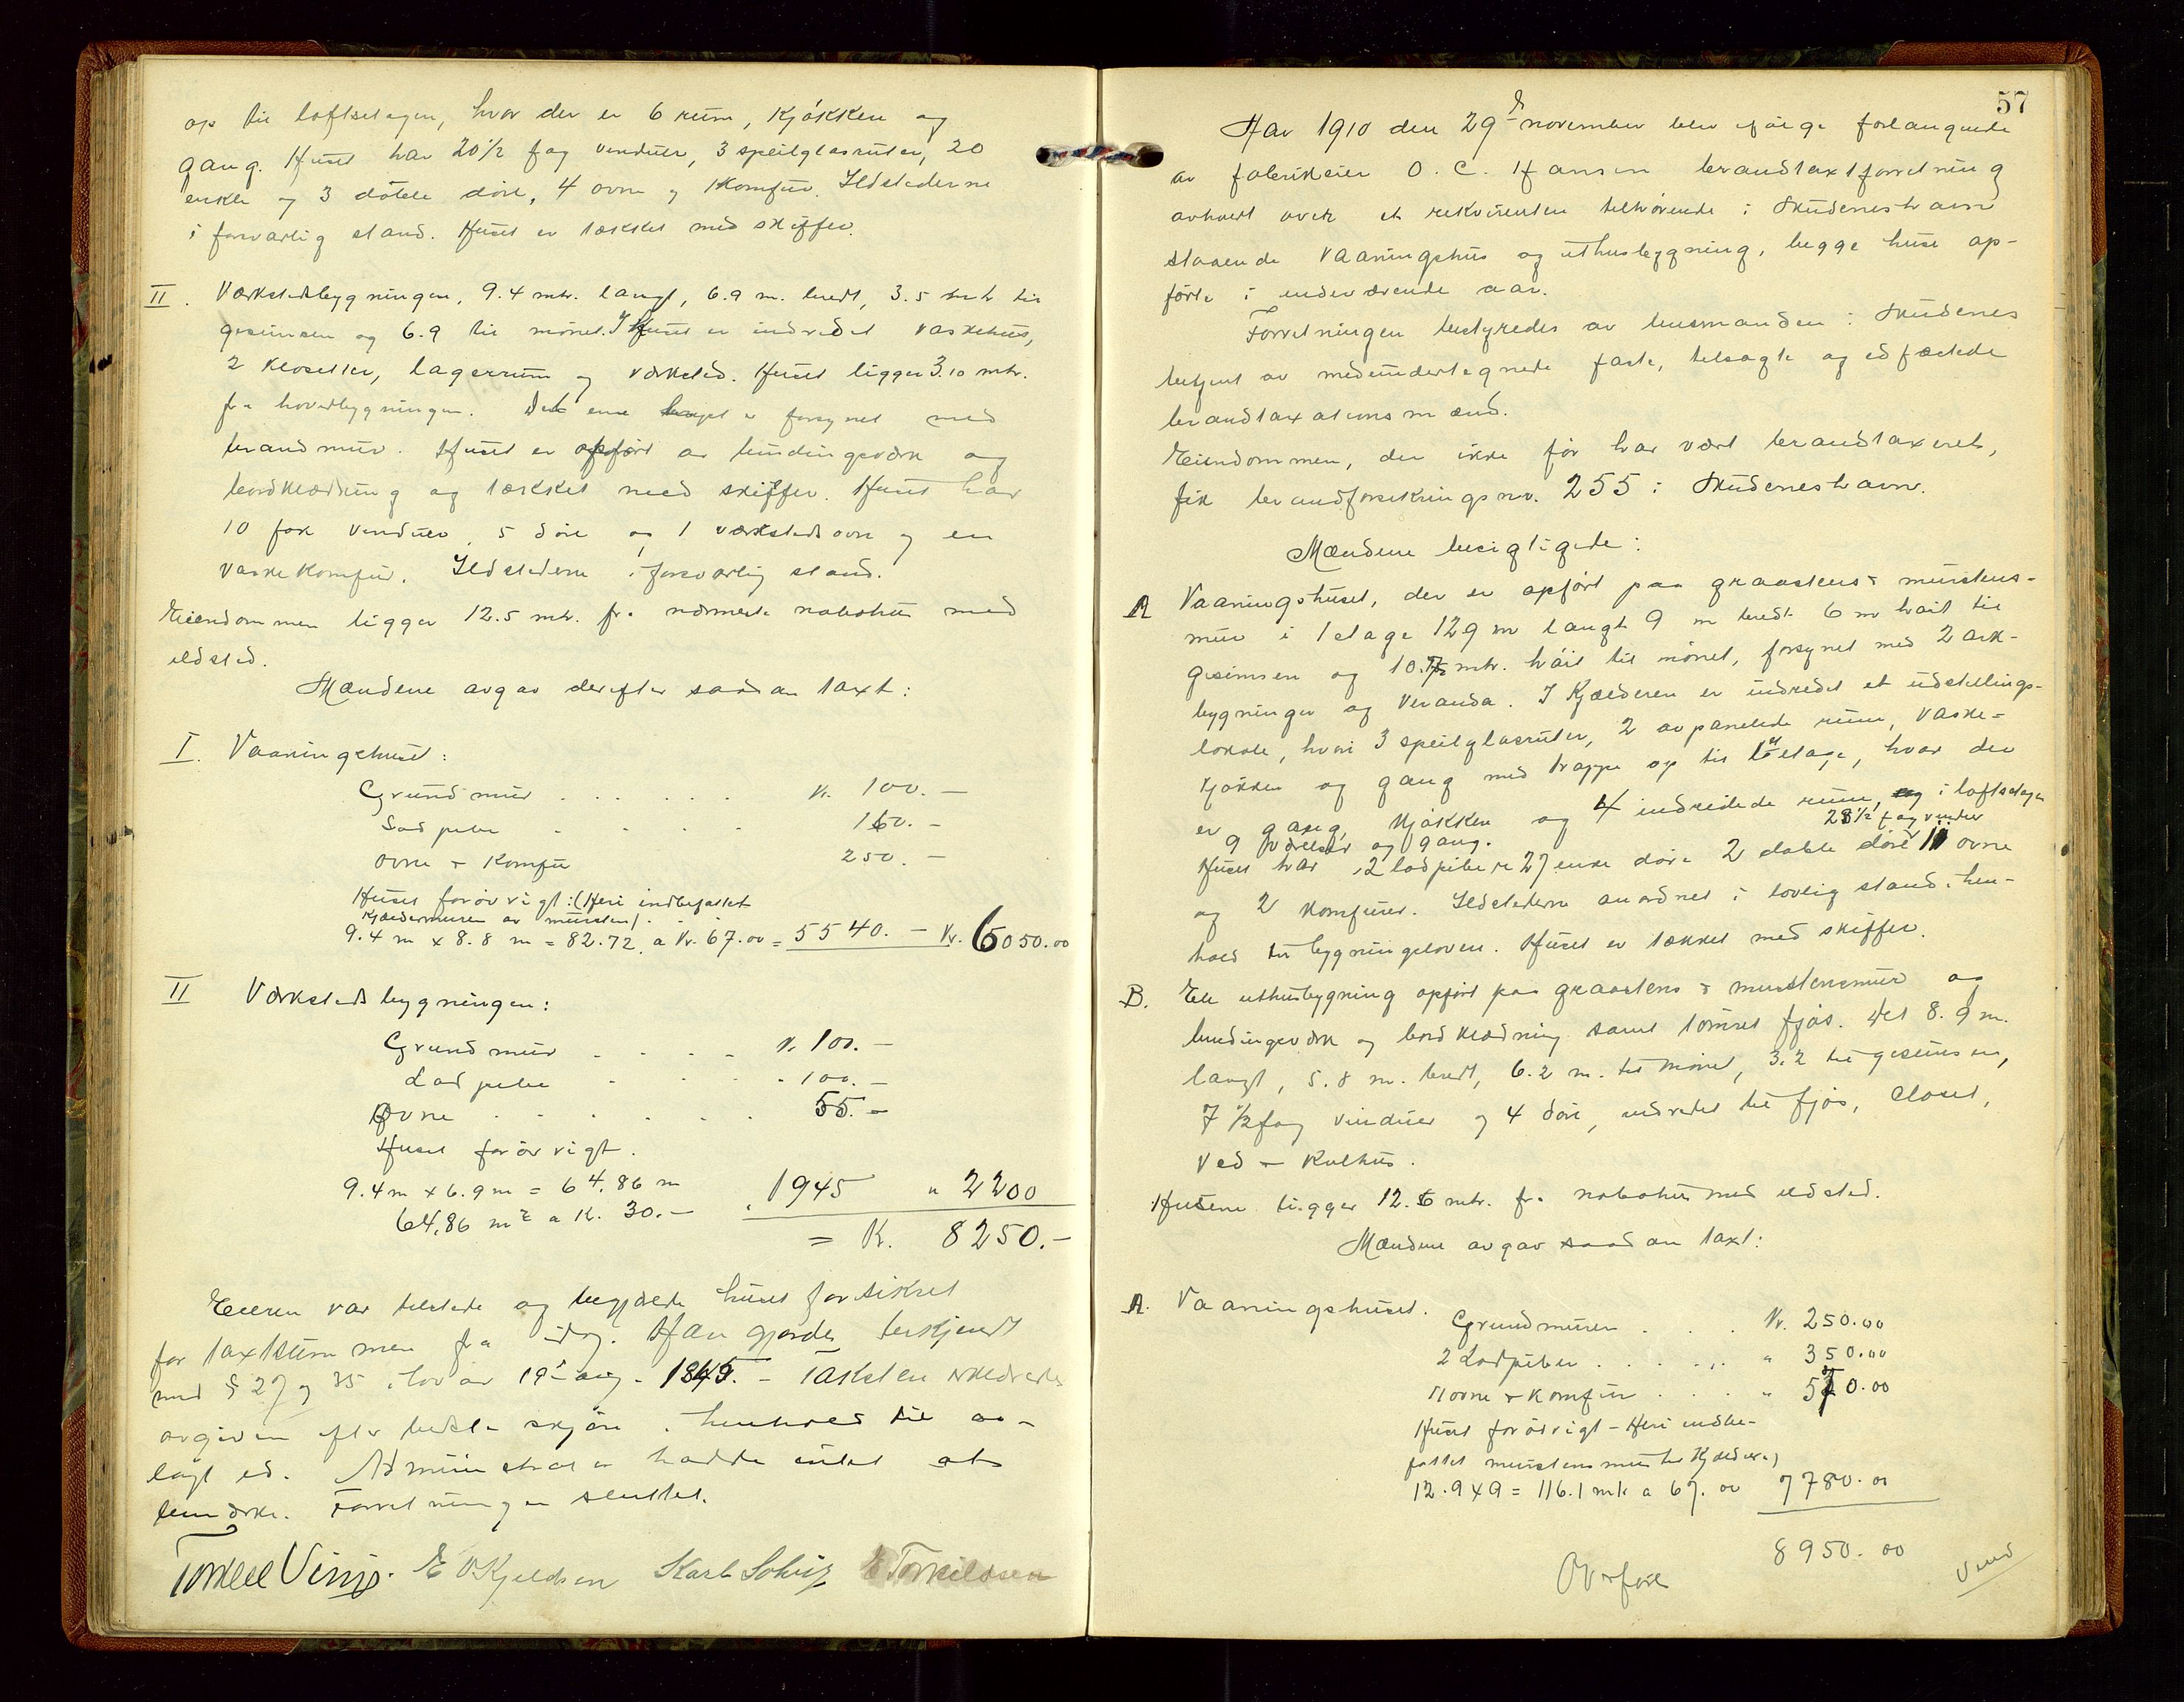 op til loftsetagen, hvor der er 6 rum, Kjøkken og
gang. Huset har 20 1/2 fag vinduer, 3 speilglasruter, 20
enkle og 3 doble døre, 4 ovne og 1 Komfur. Ildstederne
i forsvarlig stand. Huset er tækket med skiffer.
II. Værkstedbygningen, 9.4 mtr. langt, 6.9 m. bredt, 3.5 mtr til
gesimsen og 6.9 til mønet. I Huset er indredet vaskehus,
2 Klosetter, lagerrum og værksted. Huset ligger 3.10 mtr.
fra hovedbygningen. Den ene er forsynet med
brandmur. Huset er opført av bindingsværk og
bordklædning og tækket med skiffer. Huset har
10 fag vinduer, 5 døre og 1 værkstedsovn og en
vaskekomfur. Ildstederne i forsvarlig stand.
Eiendommen ligger 12.5 mtr. fra nærmeste nabohus med
ildsted.
Mændene avgav derefter saadan taxt:
I. Vaaningshuset:
Grundmur . . . . . Kr. 100.-
Lodpibe . . . . 160.-
ovne + Komfur 250.-
Huset forøvrigt: (Heri indbefattet
Kjældermuren av mursten)
9.4 m x 8.8 m = 82.72 a Kr. 67.00 = 5540.- Kr. 6050.00
II Værkstedsbygningen:
Grundmur . . . . Kr. 100.-
Lodpibe . . . . 100.-
Ovne . . . . . . 55.-
Huset forøvrigt.
9.4 m x 6.9 m = 64.86 m
64,86 m² a K. 30.- 1945 " 2200
= K. 8250.-
Eieren var tilstede og begjærte huset forsikret
for taxtsummen fra idag. Han gjordes bekjendt
med § 27 og 35 i lov av 19de aug. 1845. - Taksten
avgiven efter bedste skjøn i henhold til av-
lagt ed. Administrator hadde intet at
bemærke. Forretningen sluttet.
Torkell Vinje. E O Kjeldsen Karl Schiz E Torkildsen
57
Aar 1910 den 29de november blev ifølge forlangende
av fabrikeier O. C. Hansen brandtaxtforretning
avholdt over et rekvirenten tilhørende i Skudeneshavn
staaende vaaningshus og uthusbygning, begge huse op-
førte i indeværende aar.
Forretningen bestyredes av lensmanden i Skudenes
betjent av medundertegnede faste, tilsagte og edfæstede
brandtaxationsmænd.
Eiendommen, der ikke før har vært brandtaxeret,
fik brandforsikringsnr. 255 i Skudeneshavn.
Mændene besigtigede:
A Vaaningshuset, der er opført paa graastens & murstens-
mur i 1 etage 12.9 m langt 9 m bredt 6 m høit til
gesimsen og 10.75 mtr. høit til mønet, forsynet med 2 ark-
bygninger og Veranda. I Kjælderen er indredet et udstillings-
lokale, hvori 3 speilglasruter, 2 avpanelede rum, vaske-
kjøkken og gang med trappe op til 1ste etage, hvor der
er gang, Kjøkken og 4 indredede rum, og i loftsetagen
9 værelser og gang. 28 1/2 fag vinduer
Huset har 2 lodpiber 27 enke døre 2 doble døre 11 ovne
og 2 Komfurer. Ildstederne anordnet i lovlig stand i hen-
hold til bygningsloven. Huset er tækket med skiffer.
B. En uthusbygning opført paa graastens & murstensmur og
bindingsværk og bordklædning samt tømret fjøs. Det 8.9 m.
langt, 5.8 m. bredt, 6.2 m. til mønet, 3.2 til gesimsen,
7 1/2 fag vinduer og 4 døre, indredet til fjøs, closet,
ved + Kulhus.
Husene ligger 12.5 mtr. fra nabohus med ildsted.
Mændene avgav saadan taxt:
A. Vaaningshuset.
Grundmuren . . . Kr. 250.00
2 Lodpiber . . . . " 350.00
11 ovne + Komfur . . . " 570.00
Huset forøvrigt - Heri indbe-
fattet murstensmur til Kjælderen)
12.9 x 9 = 116.1 mtr a 67.00 7780.00
8950.00
Overføres
Vend